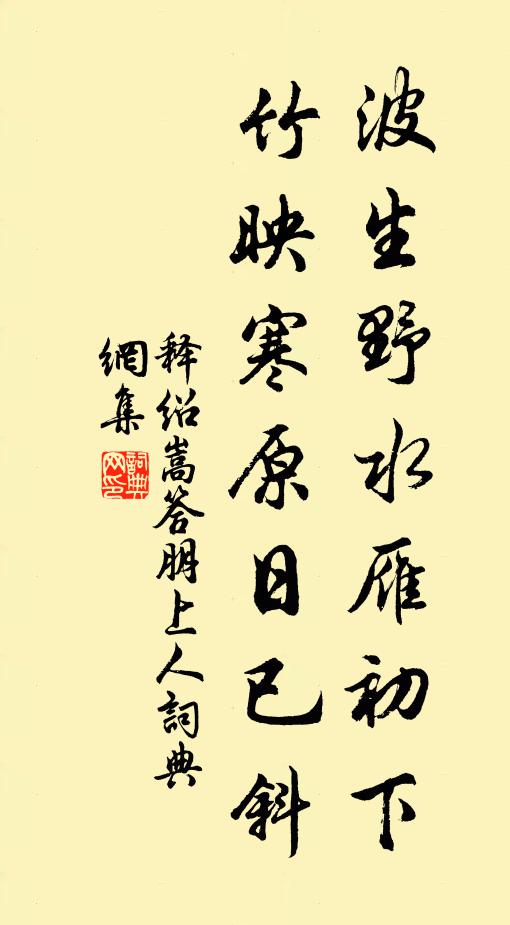 波生野水雁初下
竹映寒原日已斜
释绍嵩答朋上人詞典
網集
詞典网印